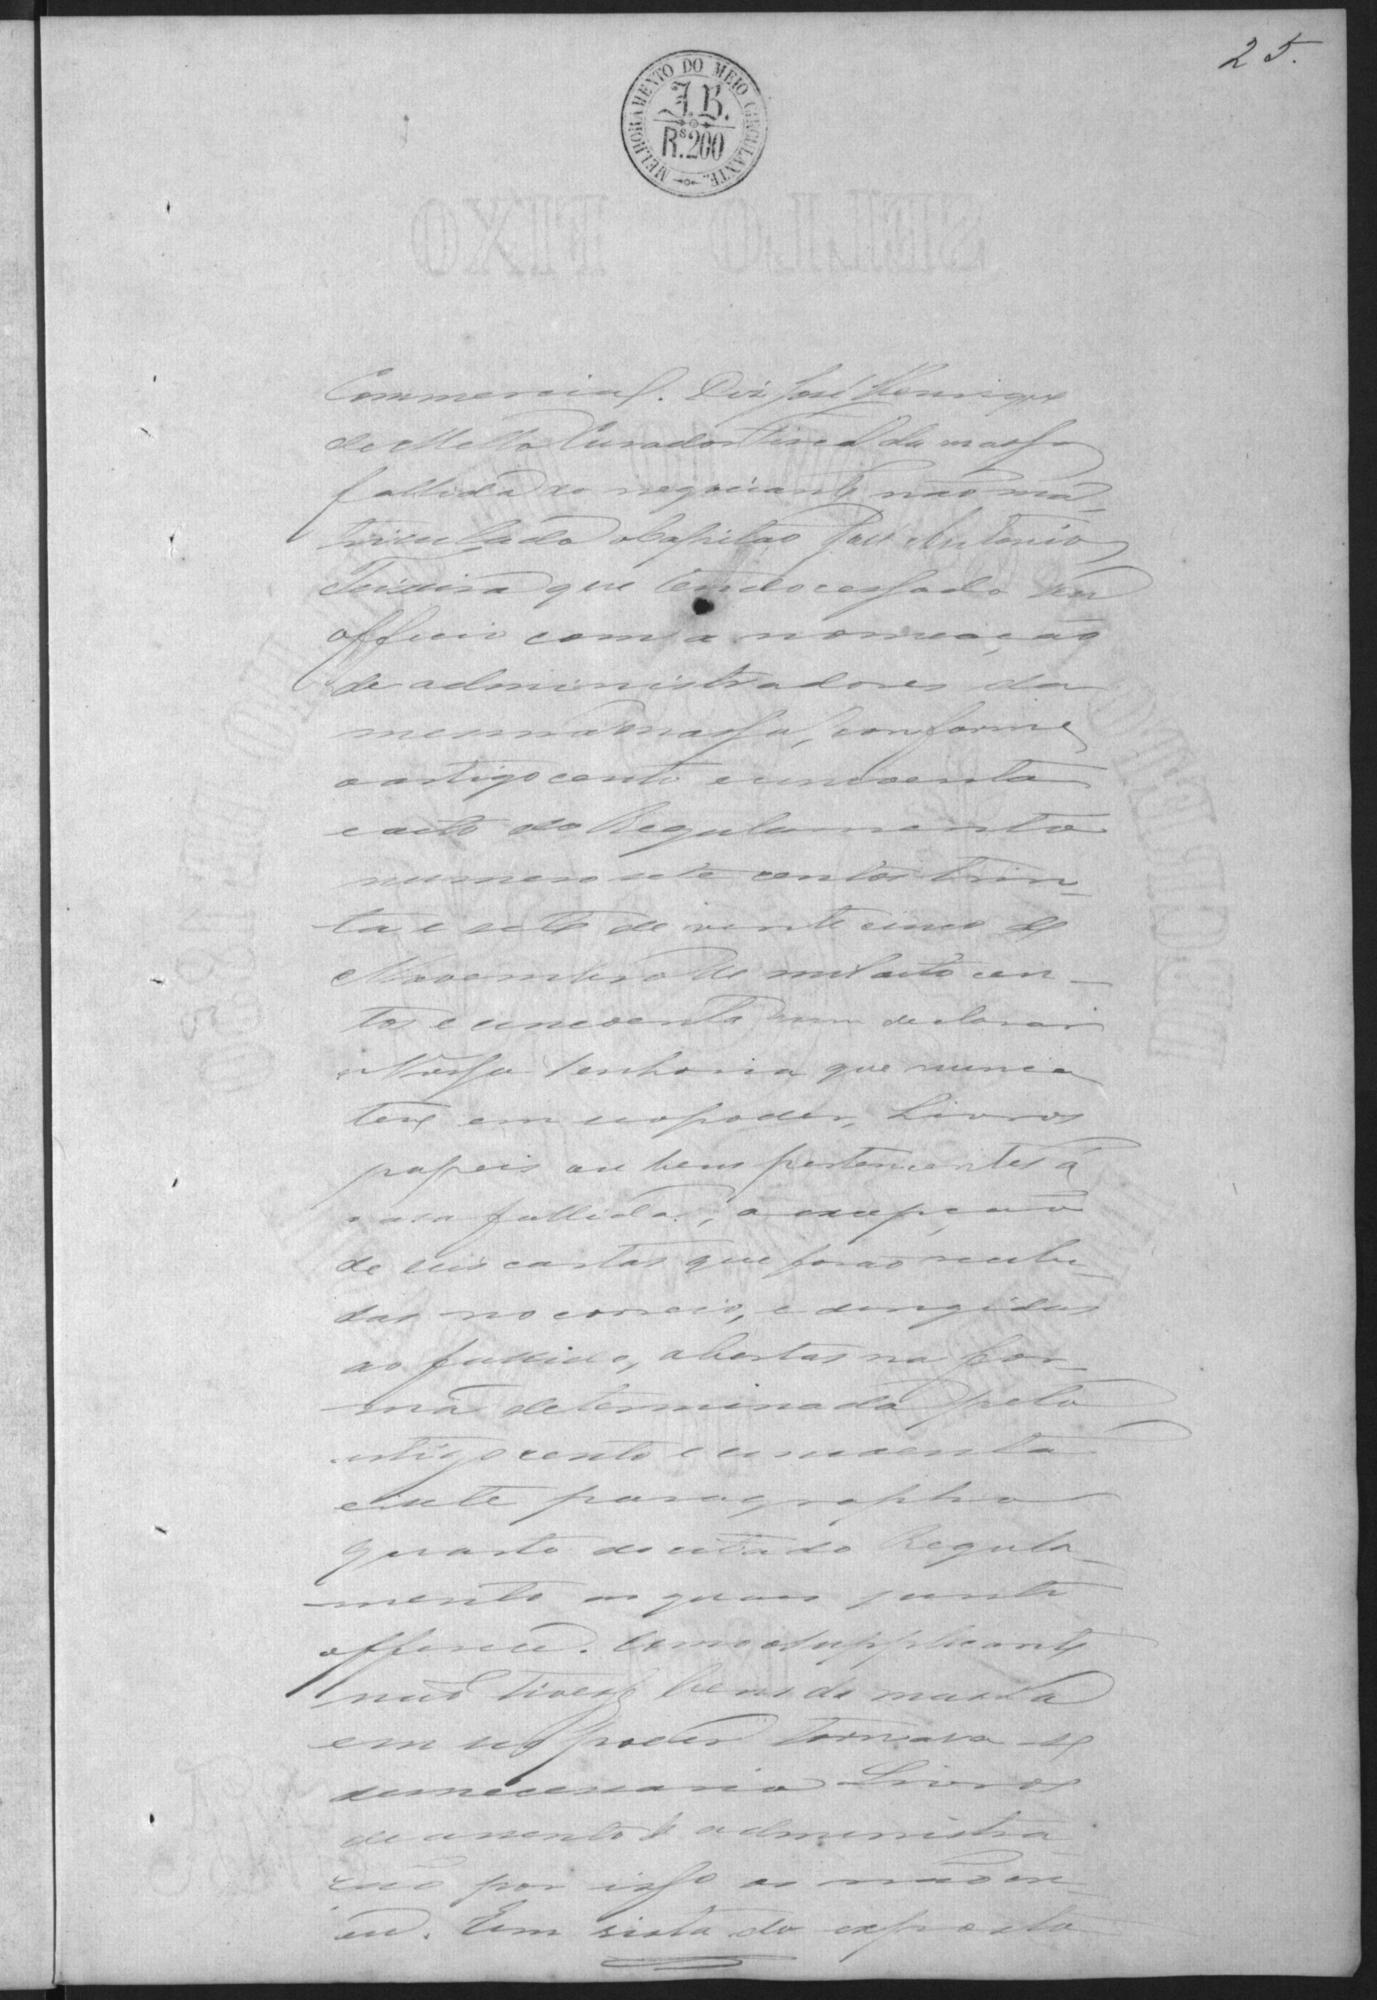 25.
MELHORAMENTO DO MEIO CIRCULANTE
J.B.
Rs.200
SELLO FIXO
Commercial. Diz José Henriques
de Mello Curador Fiscal da massa
fallida do negociante não ma-
triculado o Capitão José Antonio
Teixeira que tendo cessado seu
officio com a nomeação
de administradores da
mesma massa, conforme
o artigo cento e cincoenta
e oito do Regulamento
numero sete centos trin-
ta e sete de vinte cinco de
Novembro de mil oito cen-
tos e cincoenta vem declarar
a Vossa Senhoria que nunca
teve em seo poder, Livros
papeis ou bens pertencentes á
casa fallida, a excepção
de seis cartas que forão recebi-
das no correio, e dirigidas
ao fallido, abertas na for-
ma determinada pelo
artigo cento e cincoenta
e sete paragrapho
quarto do citado Regula-
mento as quaes junto
offerece. Como o Supplicante
não tivesse bens da massa
em seo poder tornava se
desnecessario Livros
de assento e administra
ção por isso os não
eu. Em vista do exposto